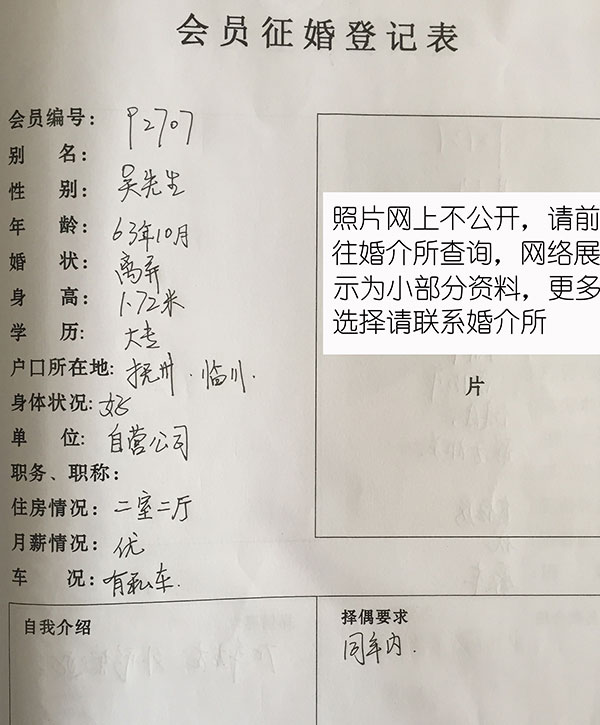 会员征婚登记表
会员编号： P2707
别 名：
性 别： 吴先生
年 龄： 63年10月
婚 状： 离异
身 高： 1.72米
学 历： 大专
户口所在地： 抚州.临川.
身体状况： 好
单 位： 自营公司
职务、职称：
住房情况： 二室二厅
月薪情况： 优
车 况： 有私车.
照片网上不公开，请前
往婚介所查询，网络展
示为小部分资料，更多
选择请联系婚介所
片
自我介绍
择偶要求
同年内.